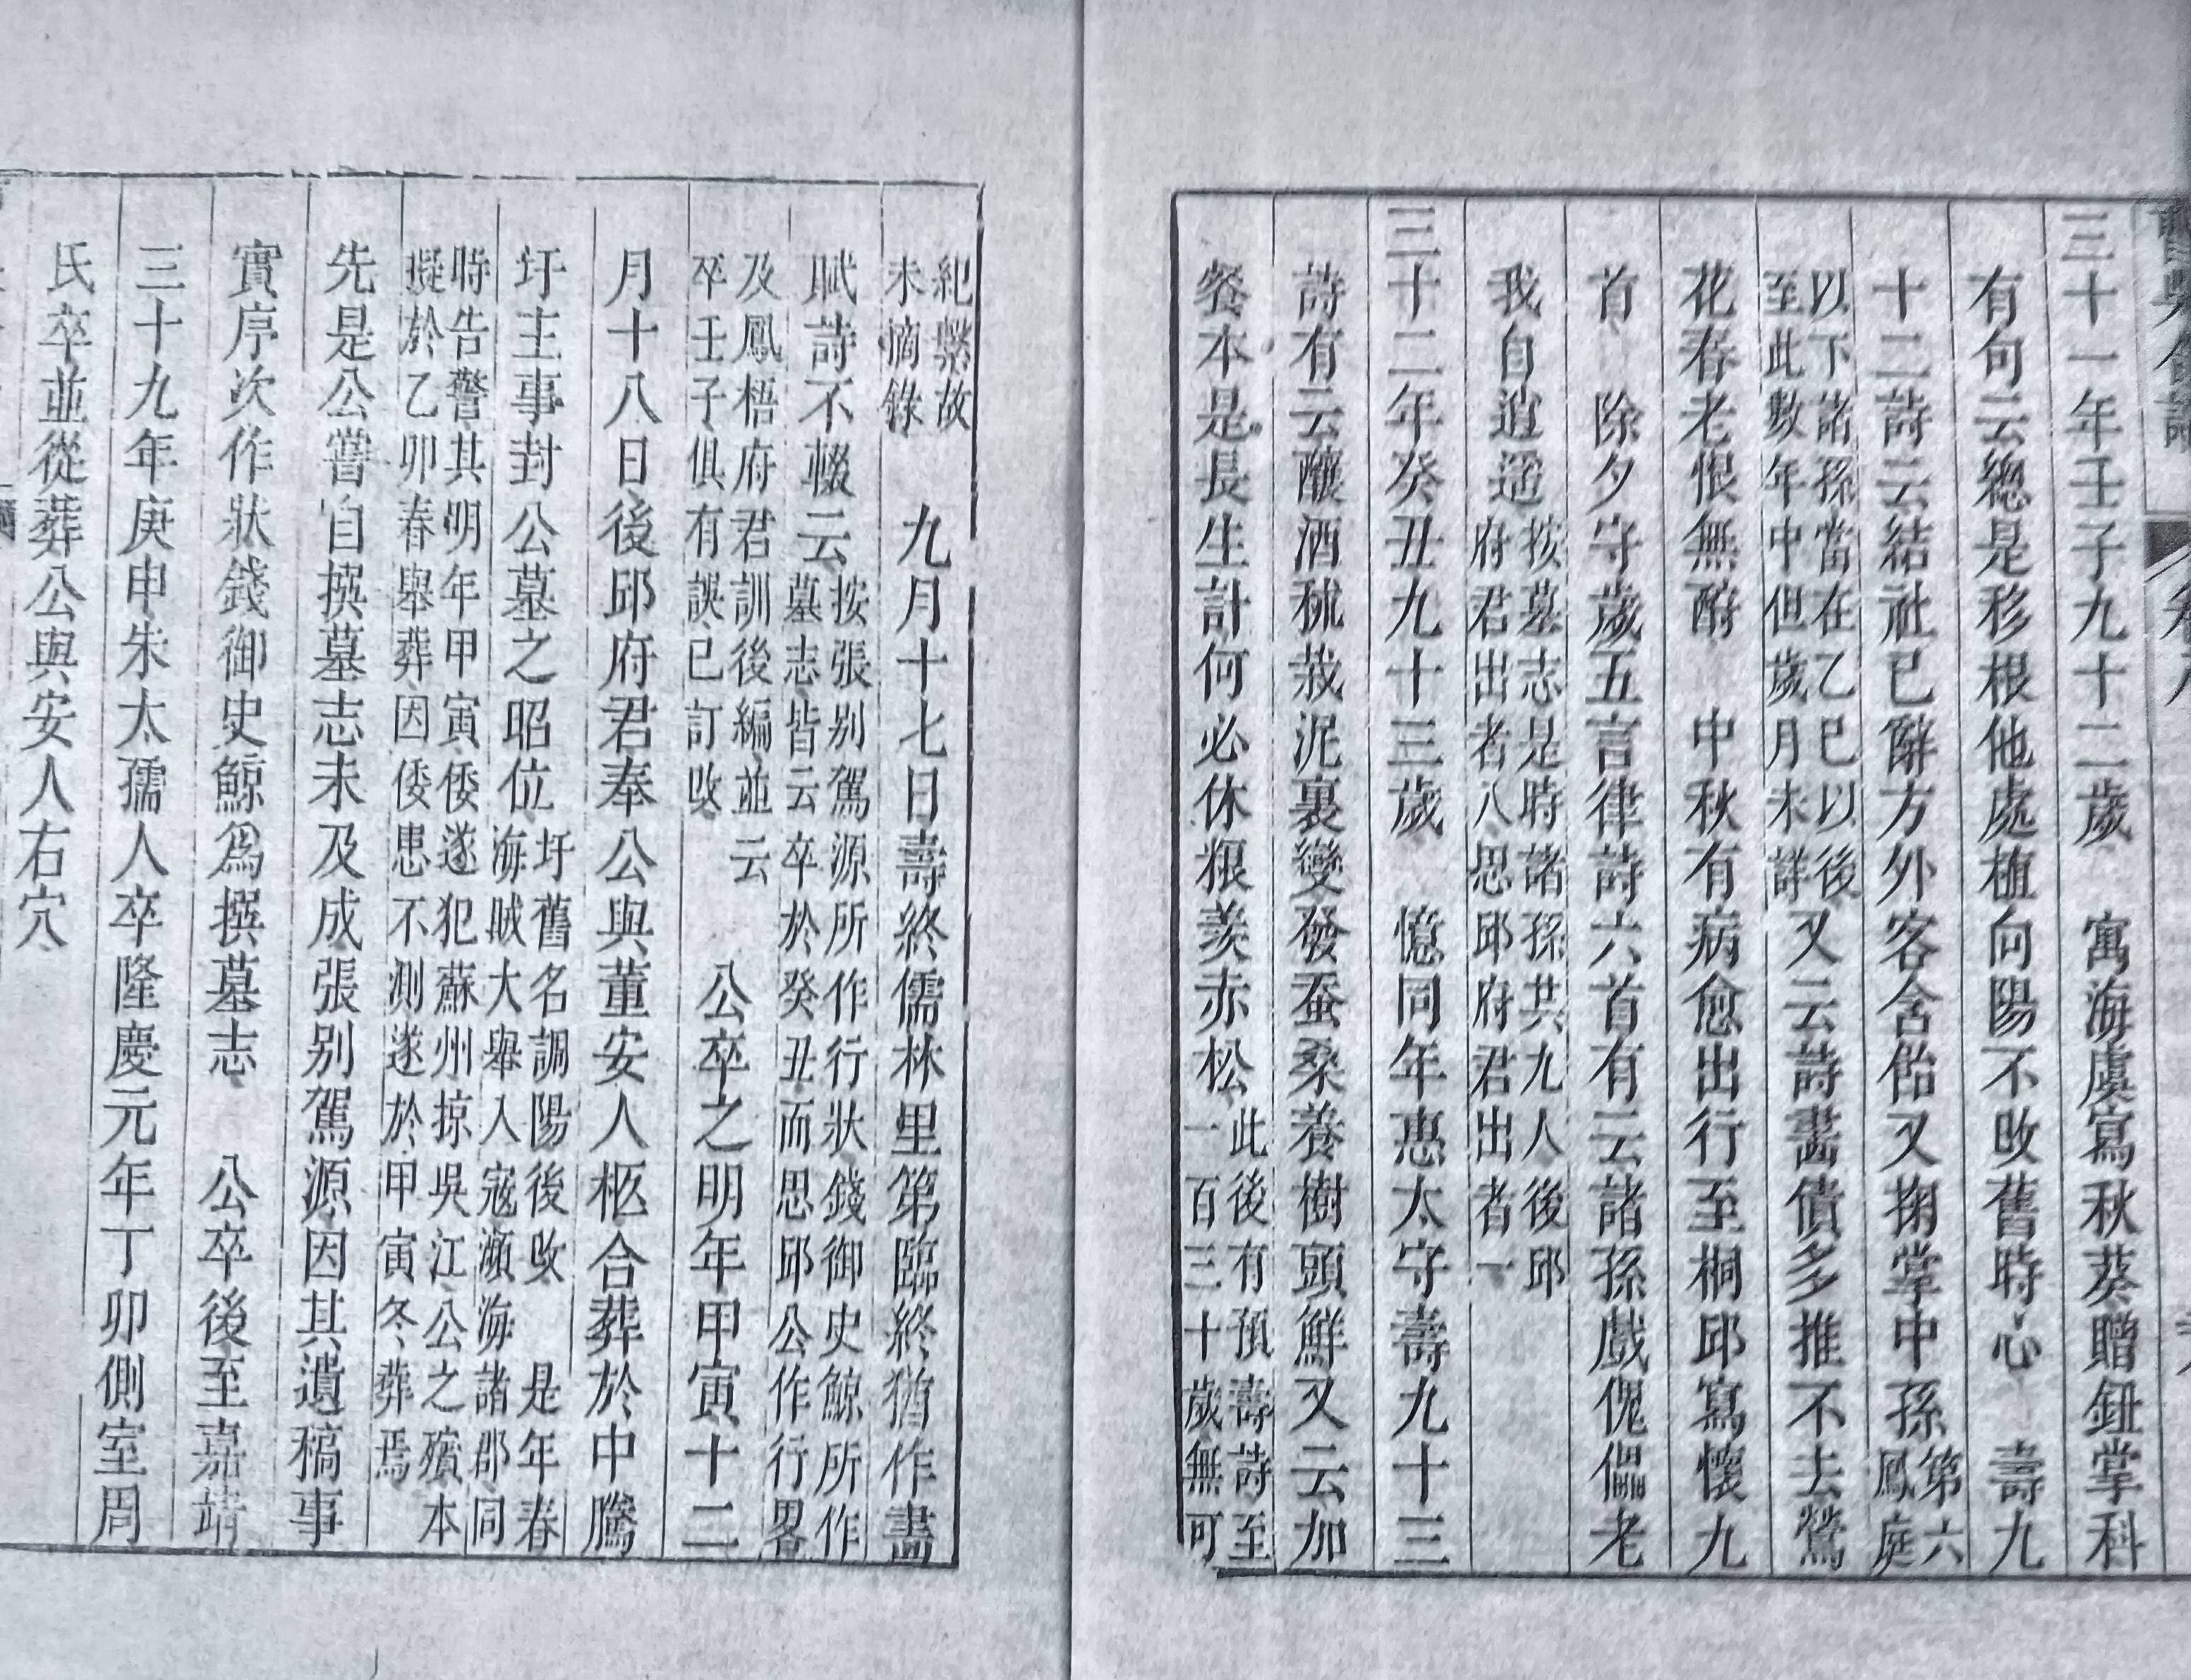 三十一年壬子九十二歲　寓海虞寫秋葵贈鈕掌科
有句云總是移根他處植向陽不改舊時心　壽九
十二詩云結社已辭方外客含飴又掬掌中孫第六
鳳庭
以下諸孫當在乙巳以後
至此數年中但歲月未詳又云詩畵債多推不去鶯
花春老恨無酧　中秋有病愈出行至桐邱寫懷九
首　除夕守歲五言律詩六首有云諸孫戲傀儡老
我自逍遥按墓志是時諸孫共九人後邱
府君出者八思邱府君出者一
三十二年癸丑九十三歲　憶同年惠太守壽九十三
詩有云釀酒秫栽泥裏變發蚕桑養樹頭鮮又云加
餐本是長生計何必休粮羨赤松此後有預壽詩至
一百三十歲無可
紀繫故
未摘錄　九月十七日壽終儒林里第臨終猶作畵
賦詩不輟云按張别駕源所作行狀錢御史鯨所作
墓志皆云卒於癸丑而思邱公作行畧
及鳳梧府君訓後編並云
卒壬子俱有誤已訂改　公卒之明年甲寅十二
月十八日後邱府君奉公與董安人柩合葬於中騰
圩主事封公墓之昭位圩舊名調陽後改　是年春
海賊大舉入寇瀕海諸郡同
時告警其明年甲寅倭遂犯蘇州掠吳江公之殯本
擬於乙卯春舉葬因倭患不測遂於甲寅冬葬焉
先是公嘗自撰墓志未及成張别駕源因其遺稿事
實序次作狀錢御史鯨爲撰墓志　公卒後至嘉靖
三十九年庚申朱太孺人卒隆慶元年丁卯側室周
氏卒並從葬公與安人右穴